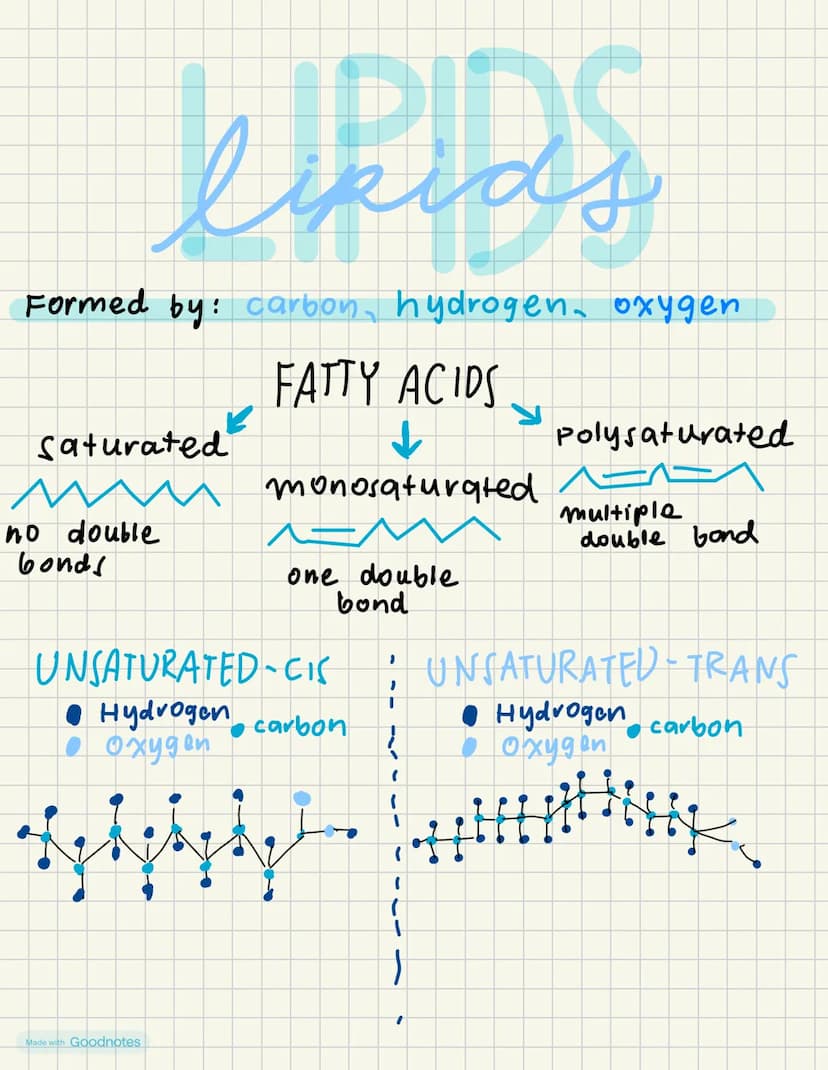 LIPIDS
lipids
Formed by: carbon, hydrogen, oxygen
FATTY ACIDS
saturated
no double
bonds
monosaturated
one double
bond
polysaturated
multiple
double bond
UNSATURATED-CIS
Hydrogen
carbon
oxygen
UNSATURATED-TRANS
Hydrogen
carbon
oxygen
Made with Goodnotes